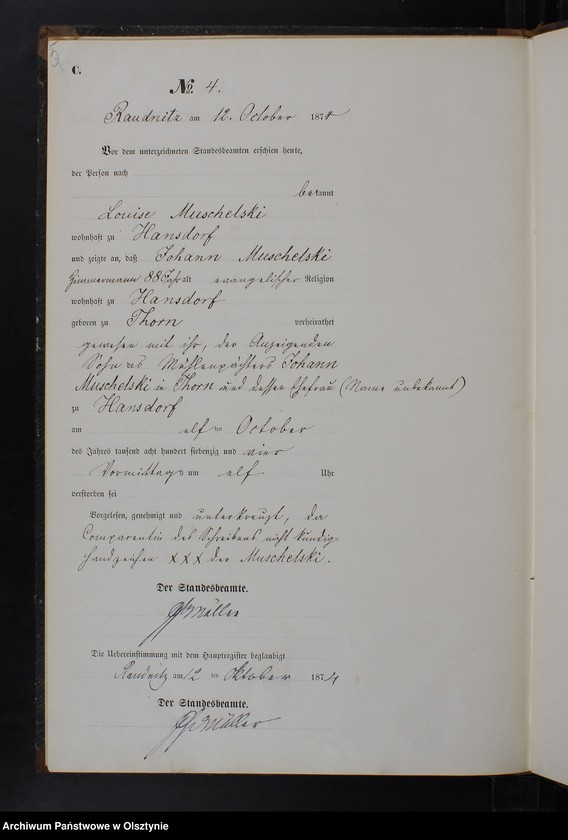 C.
No. 4.
Raudnitz am 12. October 1874
Vor dem unterzeichneten Standesbeamten erschien heute,
der Person nach
bekannt
Louise Muschelski
wohnhaft zu Hansdorf
und zeigte an, daß Johann Muschelski
Zimmermann 88 Jahr alt evangelischer Religion
wohnhaft zu Hansdorf
geboren zu Thorn verheirathet
gewesen mit ihr, der Anzeigenden
Sohn des Mühlenpächters Johann
Muschelski in Thorn und dessen Ehefrau (Name unbekannt)
zu Hansdorf
am elf ten October
des Jahres tausend acht hundert siebenzig und vier
Vormittags um elf Uhr
verstorben sei
Vorgelesen, genehmigt und unterkreuzt, da
Comparentin des Schreibens nicht kundig
Handzeichen XXX der Muschelski.
Der Standesbeamte.
Müller
Die Uebereinstimmung mit dem Hauptregister beglaubigt
Raudnitz am 12 ten Oktober 1874
Der Standesbeamte.
Müller
Archiwum Państwowe w Olsztynie